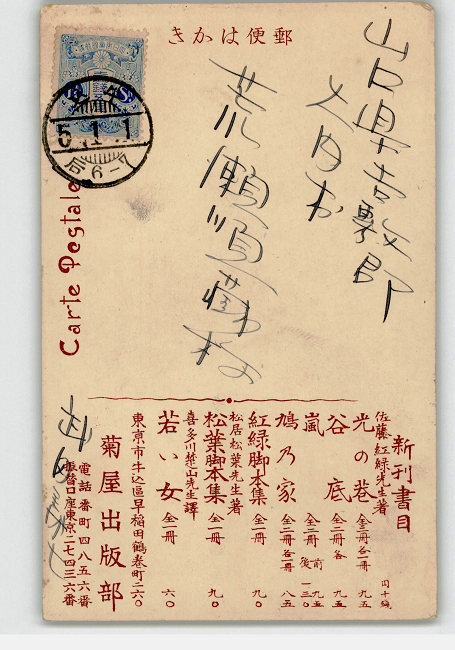 郵便はかき
山口県吉敷郡
荒瀬順蔵様
5.1.1
后6-7
Carte Postale
新刊書目
佐藤紅緑先生著
光の巷 全三冊各一冊 九五
谷底 全二冊各 九五
嵐 全二冊 前 九五 後 一三〇
鳩乃家 全二冊各一冊 八五
紅緑脚本集 全一冊 九〇
松居松葉先生著
松葉脚本集 全一冊 九〇
喜多川楚山先生譯
若い女 全一冊 六〇
東京市牛込區早稲田鶴巻町二六〇
菊屋出版部
電話番町四八五六番
振替口座東京二七四三六番